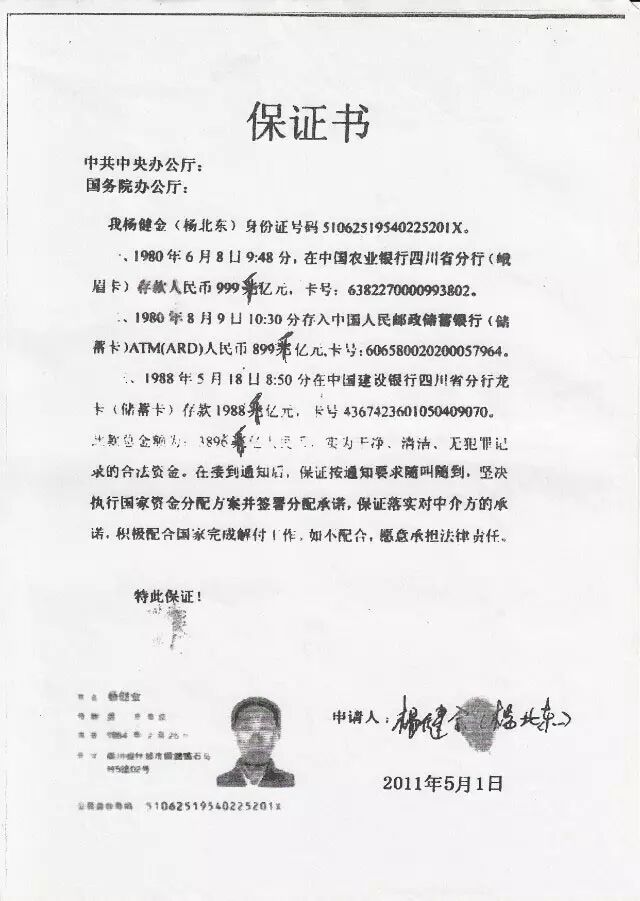 保证书
中共中央办公厅：
国务院办公厅：
我杨健金（杨北东）身份证号码51062519540225201X。
、1980年6月8日9:48分，在中国农业银行四川省分行（峨
眉卡）存款人民币999亿元，卡号：6382270000993802。
、1980年8月9日10:30分存入中国人民邮政储蓄银行（储
蓄卡）ATM(ARD)人民币899亿元,卡号:606580020200057964。
、1988年5月18日8:50分在中国建设银行四川省分行龙
卡（储蓄卡）存款1988亿元，卡号4367423601050409070。
款总金额为：3896亿人民币，实为干净、清洁、无犯罪记
录的合法资金。在接到通知后，保证按通知要求随叫随到，坚决
执行国家资金分配方案并签署分配承诺，保证落实对中介方的承
诺，积极配合国家完成解付工作，如不配合，愿意承担法律责任。
特此保证！
杨健金
51062519540225201X
申请人：杨健金（杨北东）
2011年5月1日